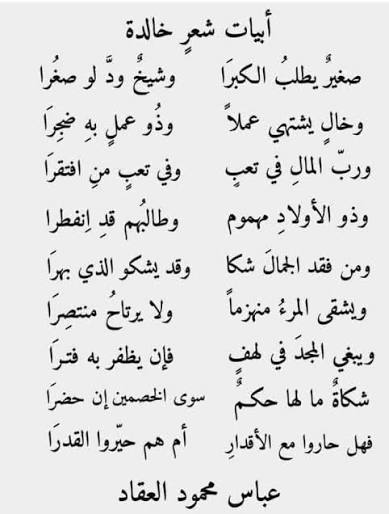 أبيات شعرٍ خالدة
صغيرٌ يطلبُ الكبرَا وشيخٌ ودَّ لو صغُرا
وخالٍ يشتهي عملاً وذُو عملٍ بهِ ضجِرَا
وربّ المالِ في تعبٍ وفي تعبٍ منِ افتقرَا
وذو الأولادِ مهموم وطالبُهم قدِ اِنفطرا
ومن فقد الجمالَ شكا وقد يشكو الذي بهرَا
ويشقى المرءُ منهزماً ولا يرتاحُ منتصِرَا
ويبغي المجدَ في لهفٍ فإن يظفر به فتـرَا
شكاةٌ ما لها حكـمٌ سوى الخصمين إن حضرَا
فهل حاروا مع الأقدارِ أم هم حيّروا القدرَا
عباس محمود العقاد